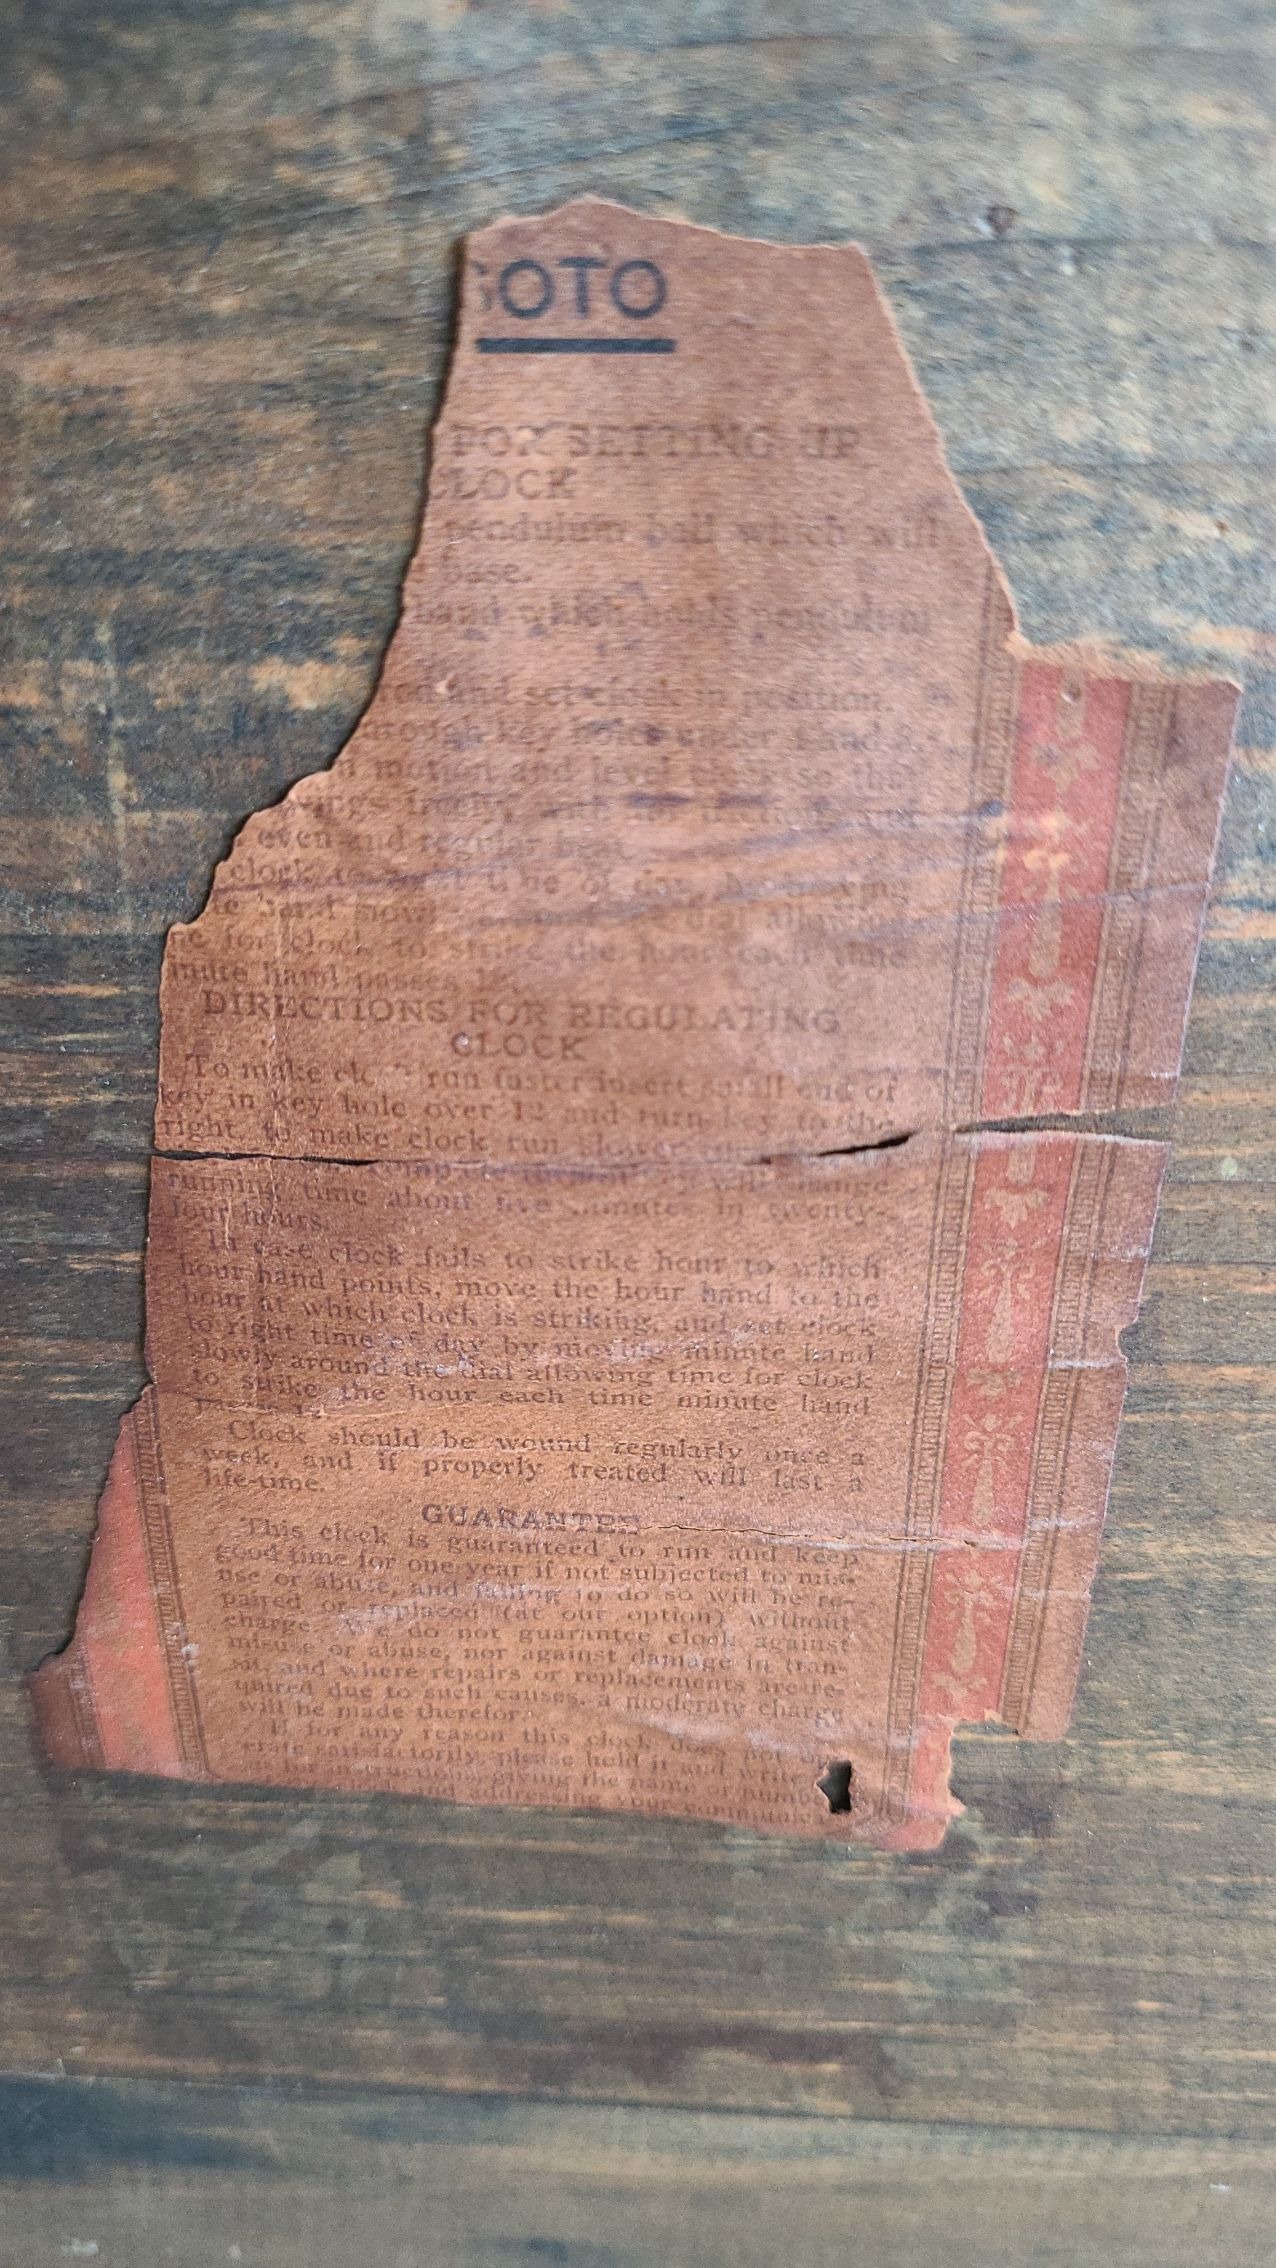 SOTO
FOR SETTING UP
CLOCK
pendulum ball which will
base.
which holds pendulum
and set clock in position.
through key hole under hand &
motion and level clock so that
even and regular
clock to right time of day, by moving
hand slowly around the dial allowing
for clock to strike the hour each time
minute hand passes 12.
DIRECTIONS FOR REGULATING
CLOCK
To make clock run faster insert small end of
key in key hole over 12 and turn key to the
right, to make clock run slower
will change
running time about five minutes in twenty-
four hours.
In case clock fails to strike hour to which
hour hand points, move the hour hand to the
hour at which clock is striking, and set clock
to right time of day by moving minute hand
slowly around the dial allowing time for clock
to strike the hour each time minute hand
passes 12.
Clock should be wound regularly once a
week, and if properly treated will last a
life-time.
GUARANTEE
This clock is guaranteed to run and keep
good time for one year if not subjected to mis-
use or abuse, and failing to do so will be re-
paired or replaced (at our option) without
charge. We do not guarantee clock against
misuse or abuse, nor against damage in tran-
sit, and where repairs or replacements are re-
quired due to such causes, a moderate charge
will be made therefor.
If for any reason this clock does not op-
erate satisfactorily, please hold it and write
for instructions, giving the name or number
and addressing your communica